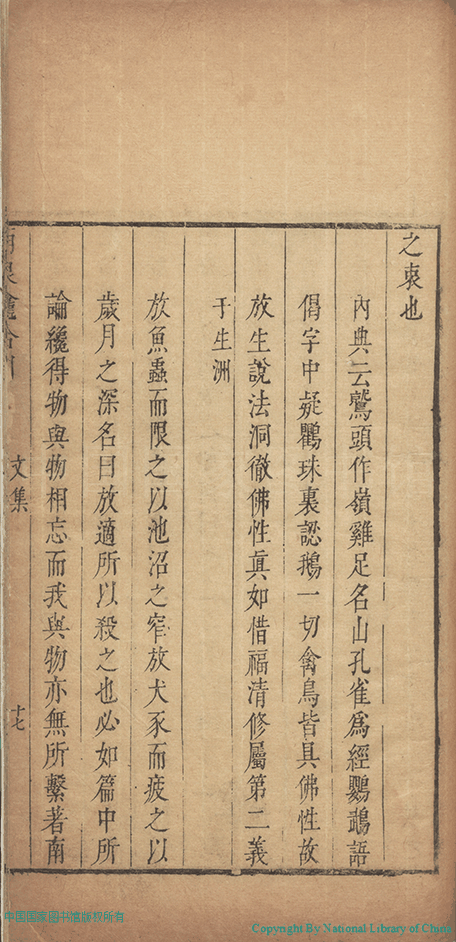 之衷也
內典云鷲頭作嶺雞足名山孔雀為經鸚鵡語
偈字中疑鸜珠裏認鵝一切禽鳥皆具佛性故
放生說法洞徹佛性眞如借福清修屬第二義
于生洲
放魚蟲而限之以池沼之窄放犬豕而疲之以
歲月之深名曰放適所以殺之也必如篇中所
論纔得物與物相忘而我與物亦無所繫著南
文集
十七
中国国家图书馆版权所有
Copyright By National Library of China